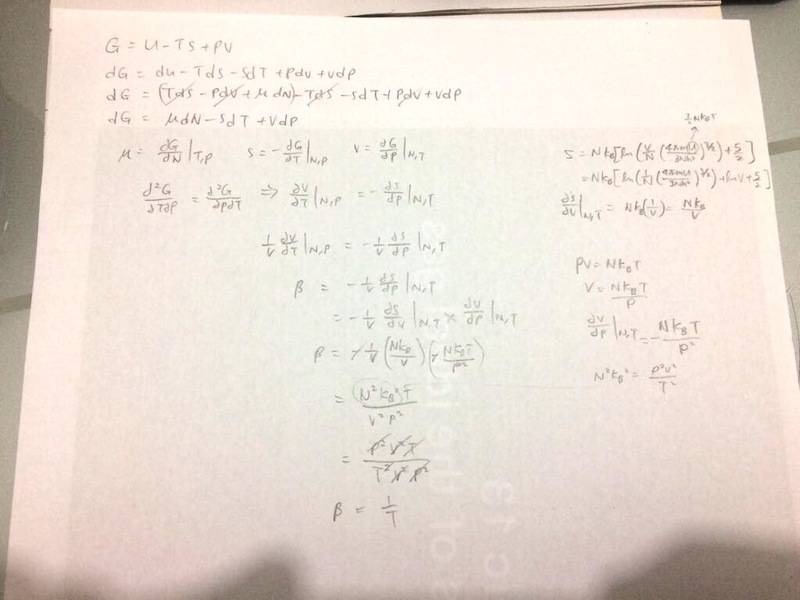 G = U - TS + PV
dG = dU - TdS - SdT + PdV + VdP
dG = (TdS - PdV + μdN) - TdS - SdT + PdV + VdP
dG = μdN - SdT + VdP
μ = ∂G/∂N |T,P    S = -∂G/∂T |N,P    V = ∂G/∂P |N,T
∂²G/∂T∂P = ∂²G/∂P∂T ⇒ ∂V/∂T |N,P = -∂S/∂P |N,T
1/V ∂V/∂T |N,P = -1/V ∂S/∂P |N,T
β = -1/V ∂S/∂P |N,T
= -1/V ∂S/∂V |N,T × ∂V/∂P |N,T
β = -1/V (NkB/V) (-NkBT/P²)
= N²kB²T/V²P²
= P²V²T/T²V²P²
β = 1/T
3/2 NkBT
S = NkB[ln(V/N (4πmU/3Nh²)^3/2) + 5/2]
= NkB[ln(1/N (4πmU/3Nh²)^3/2) + lnV + 5/2]
∂S/∂V |N,T = NkB(1/V) = NkB/V
PV = NkBT
V = NkBT/P
∂V/∂P |N,T = -NkBT/P²
N²kB² = P²V²/T²